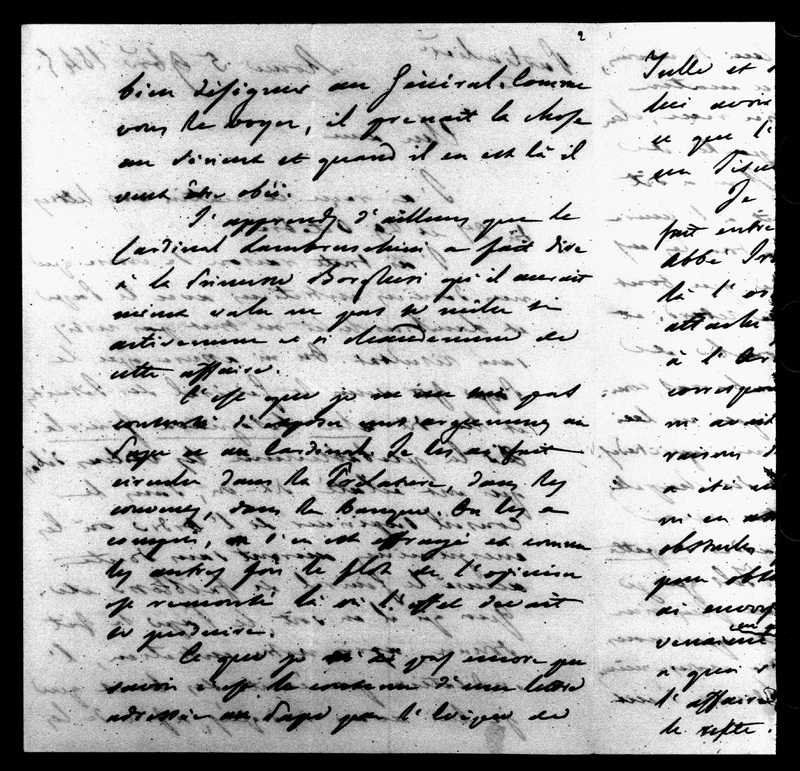 2
bien désigner au Général. Comme
vous le voyez, il prenait la chose
au sérieux et quand il en est là il
veut être obéi.
J'apprends d'ailleurs que le
Cardinal Lambruschini a fait dire
à la Princesse Borghese qu'il aurait
mieux valu ne pas se mêler si
activement et si chaudement de
cette affaire.
C'est que je ne me suis pas
contenté d'exposer mes argumens au
Pape et au Cardinal. Je les ai fait
circuler dans la Prélature, dans les
couvens, dans la banque. On les a
compris, on s'en est effrayé et comme
les autres fois le flot de l'opinion
est remonté là où l'effet devait
se produire.
Ce que je n'ai pas encore pu
savoir c'est le contenu d'une lettre
adressée au Pape par l'évêque de
Tulle et
lui avoir
ce que l'
Je
fait entre
abbé
là l'
attaché
à l'
correspon
m'avait
raisons d
a été
m'en
obstacles
pour obt
ai envoy
venaient
à quoi
l'affaire
de reste.